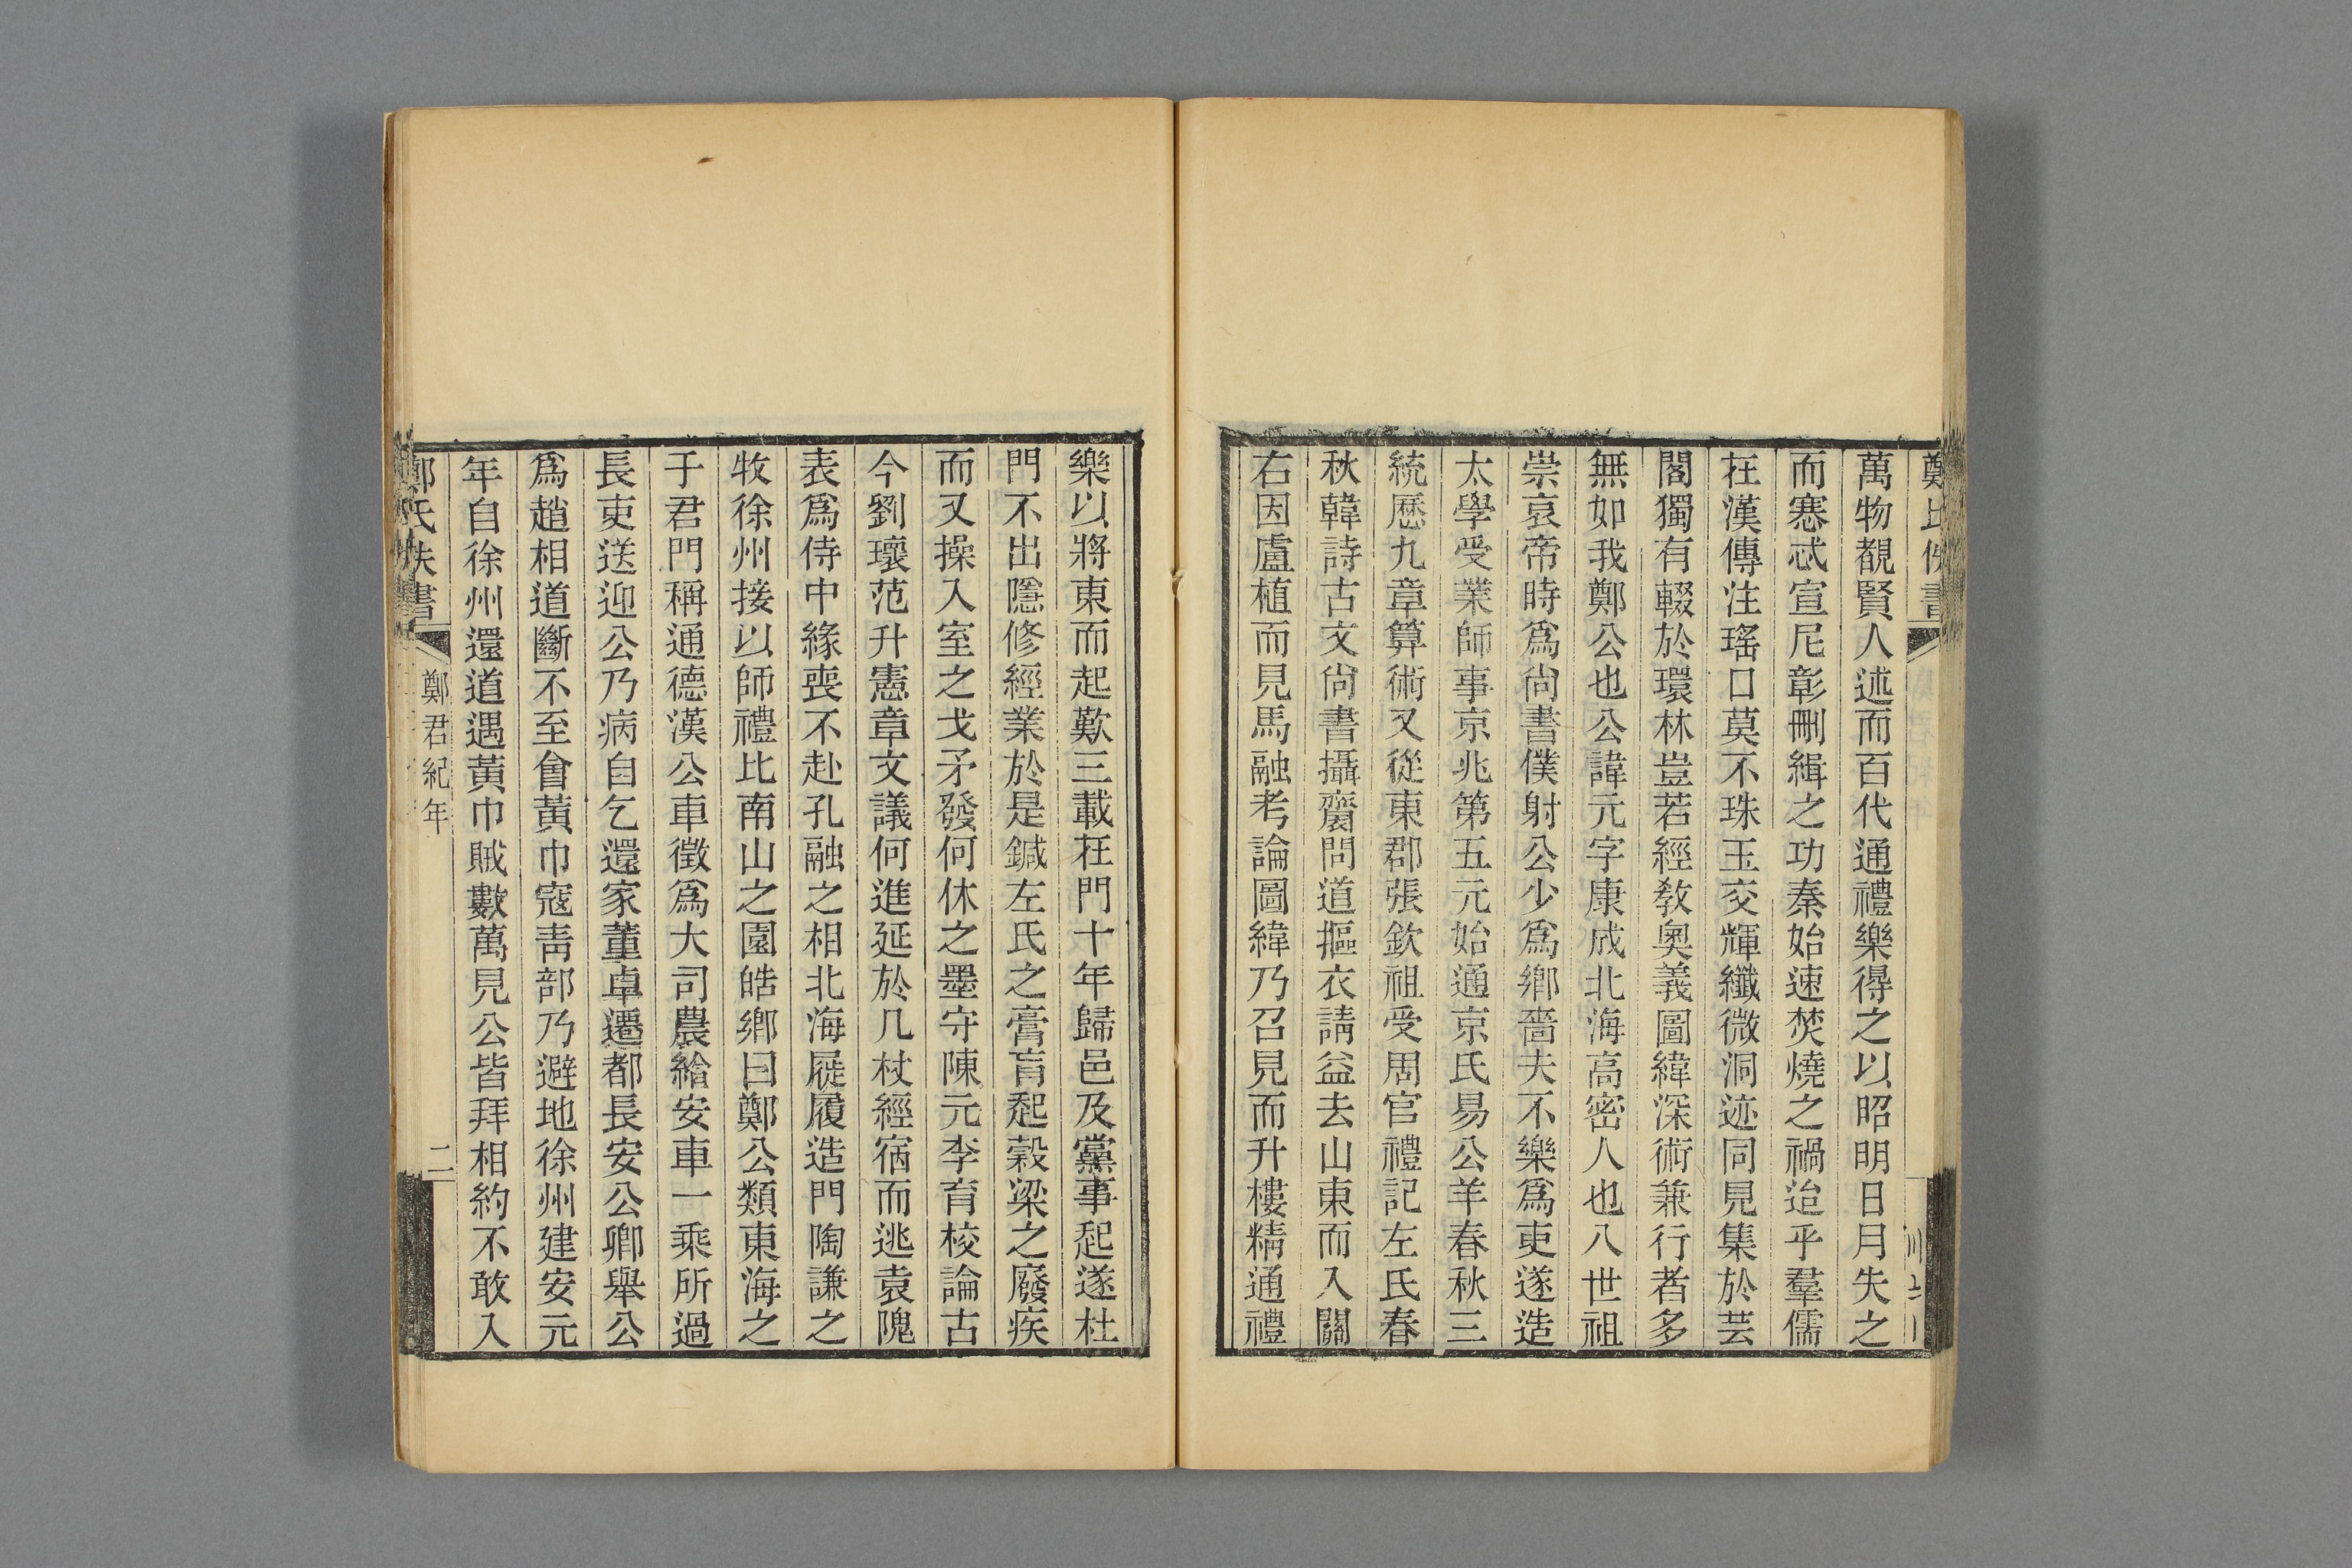 萬物覩賢人述而百代通禮樂得之以昭明日月失之
而愆忒宣尼彰刪緝之功秦始速焚燒之禍迨乎羣儒
在漢傳注瑤口莫不珠玉交輝纖微洞迹同見集於芸
閣獨有輟於環林豈若經敎奧義圖緯深術兼行者多
無如我鄭公也公諱元字康成北海高密人也八世祖
崇哀帝時爲尙書僕射公少爲鄕嗇夫不樂爲吏遂造
太學受業師事京兆第五元始通京氏易公羊春秋三
統歷九章算術又從東郡張欽祖受周官禮記左氏春
秋韓詩古文尙書攝齋問道摳衣請益去山東而入關
右因盧植而見馬融考論圖緯乃召見而升樓精通禮
樂以將東而起歎三載在門十年歸邑及黨事起遂杜
門不出隱修經業於是鍼左氏之膏肓起穀梁之廢疾
而又操入室之戈矛發何休之墨守陳元李育校論古
今劉瓌范升憲章文議何進延於几杖經宿而逃袁隗
表爲侍中緣喪不赴孔融之相北海屣履造門陶謙之
牧徐州接以師禮比南山之園皓鄕曰鄭公類東海之
于君門稱通德漢公車徵爲大司農給安車一乘所過
長吏送迎公乃病自乞還家董卓遷都長安公卿舉公
爲趙相道斷不至會黃巾寇靑部乃避地徐州建安元
年自徐州還道遇黃巾賊數萬見公皆拜相約不敢入
鄭氏佚書
鄭君紀年
二